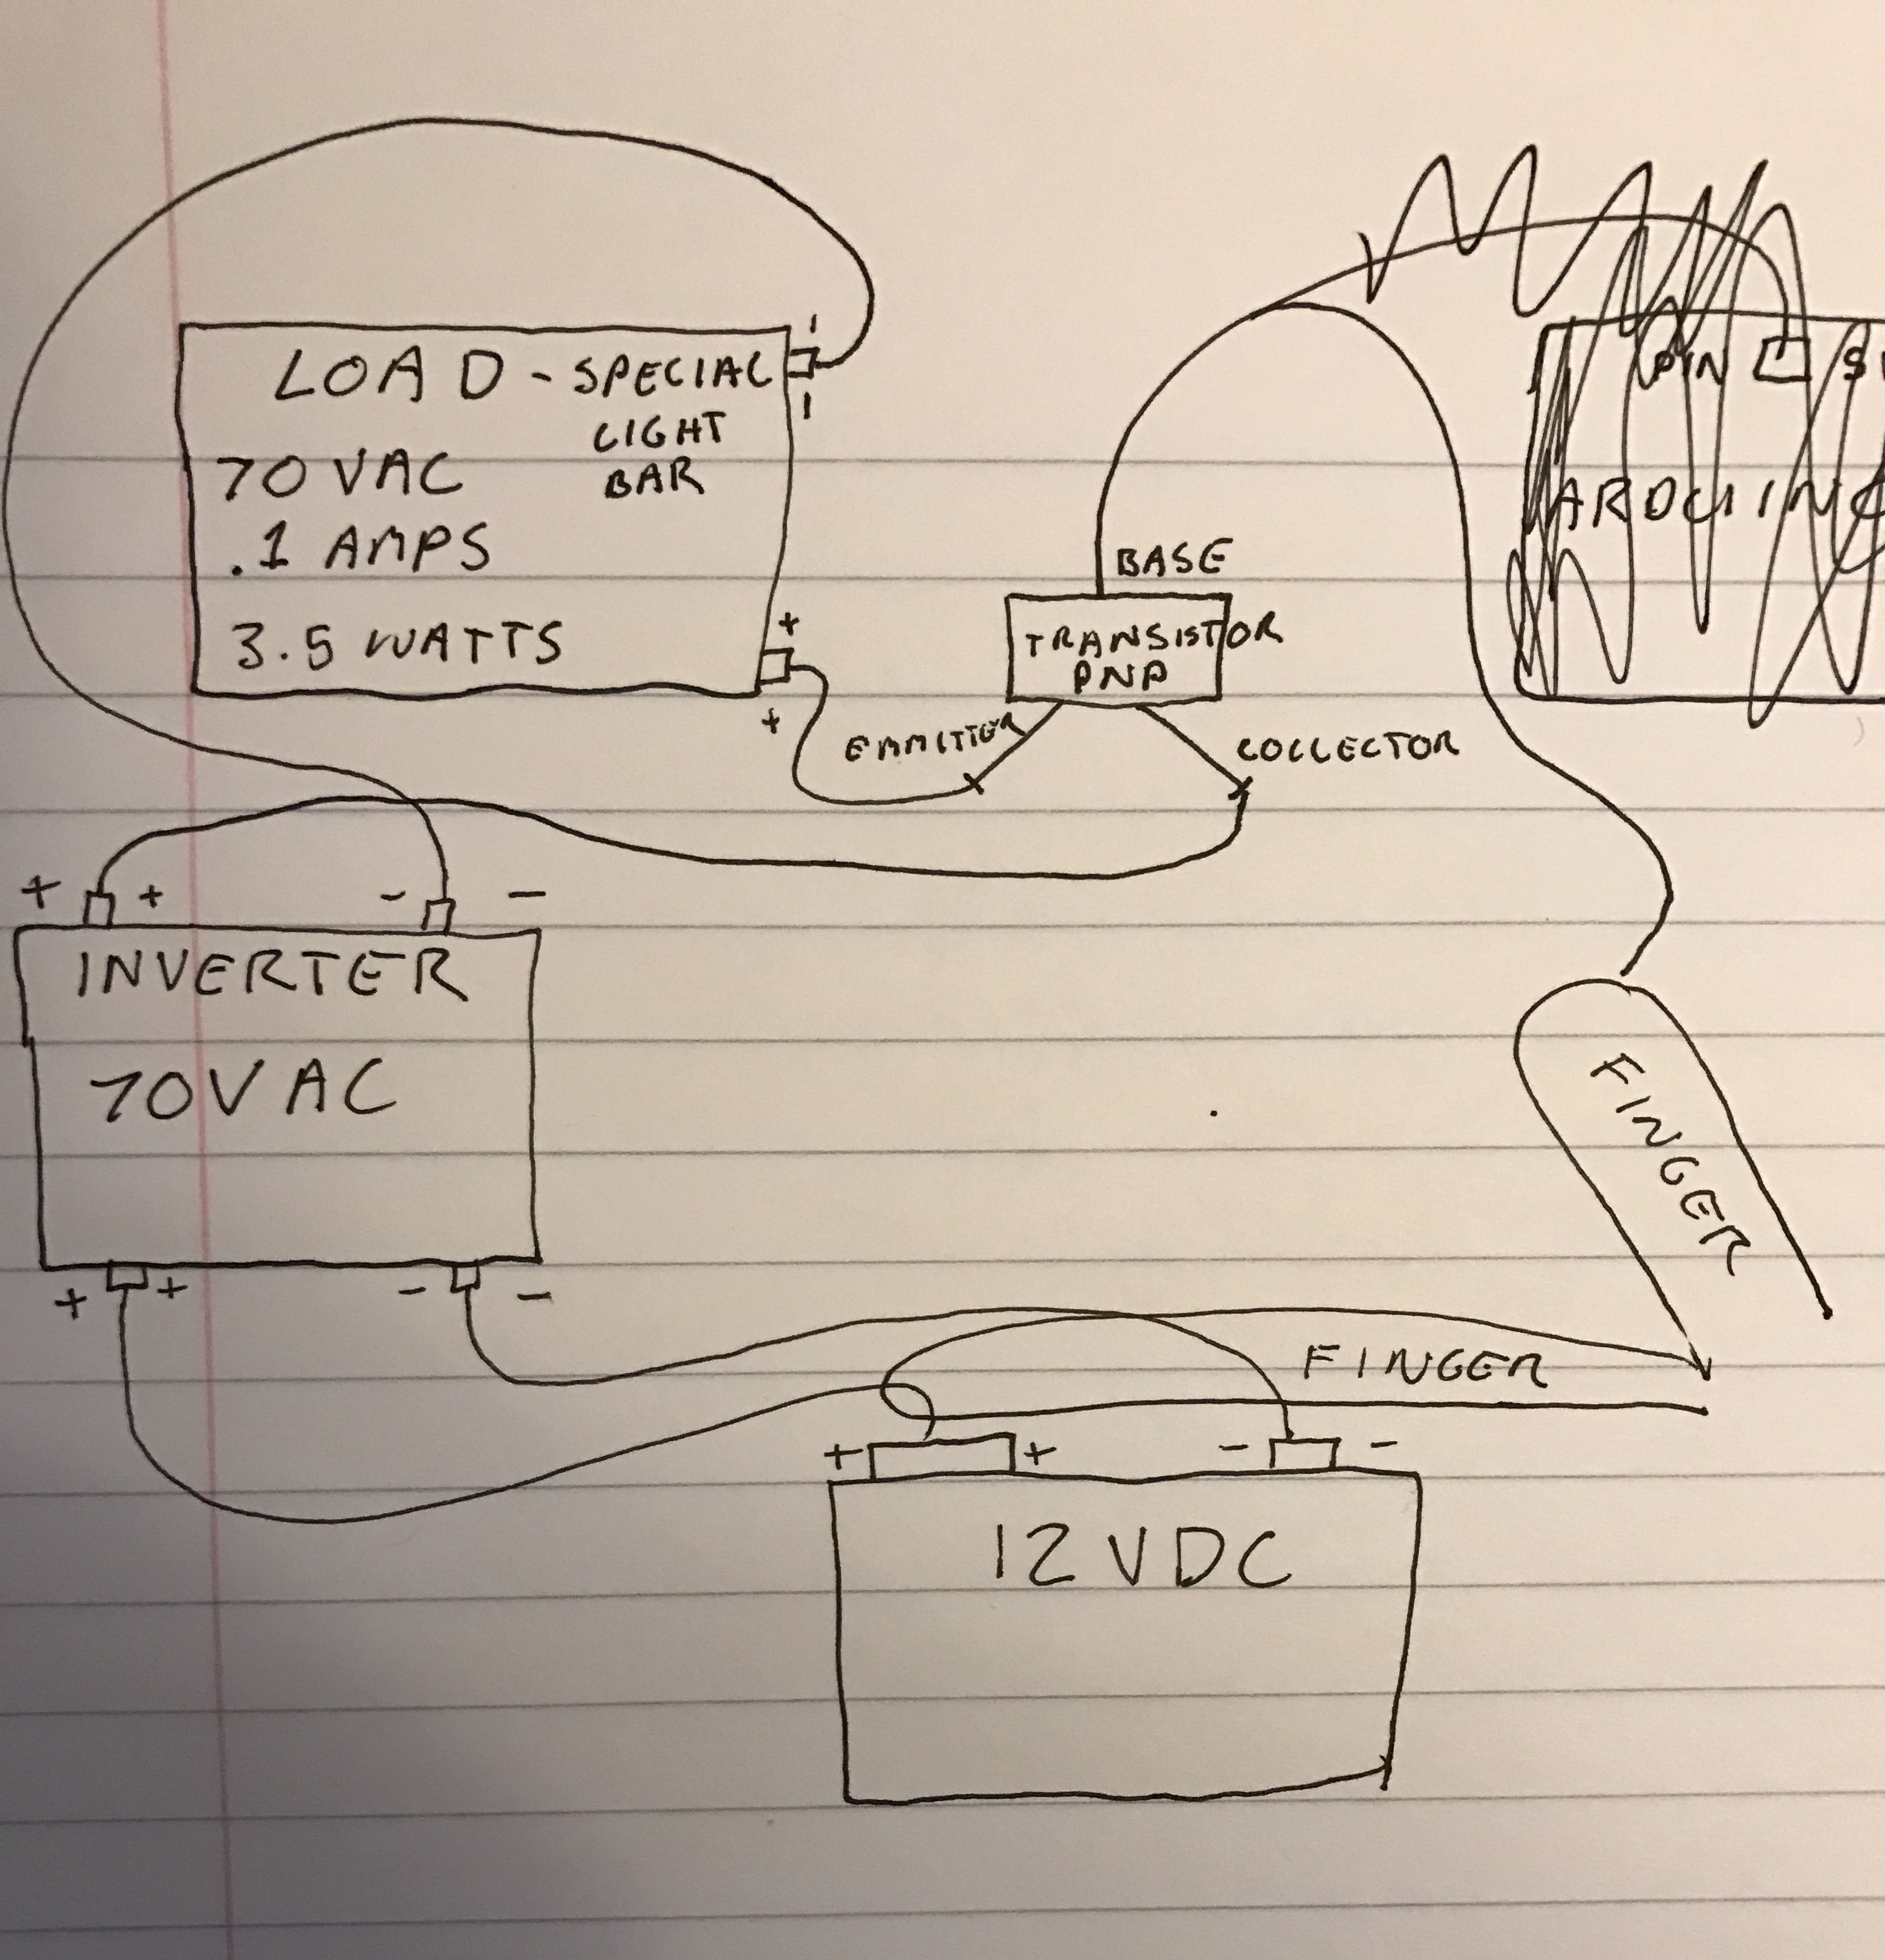 LOAD - SPECIAL
LIGHT
BAR
70 VAC
.1 AMPS
3.5 WATTS
-
-
+
+
PIN
ARDUINO
BASE
TRANSISTOR
PNP
EMMITTER
COLLECTOR
+ + - -
INVERTER
70VAC
+ + - -
FINGER
FINGER
+ + - -
12 VDC